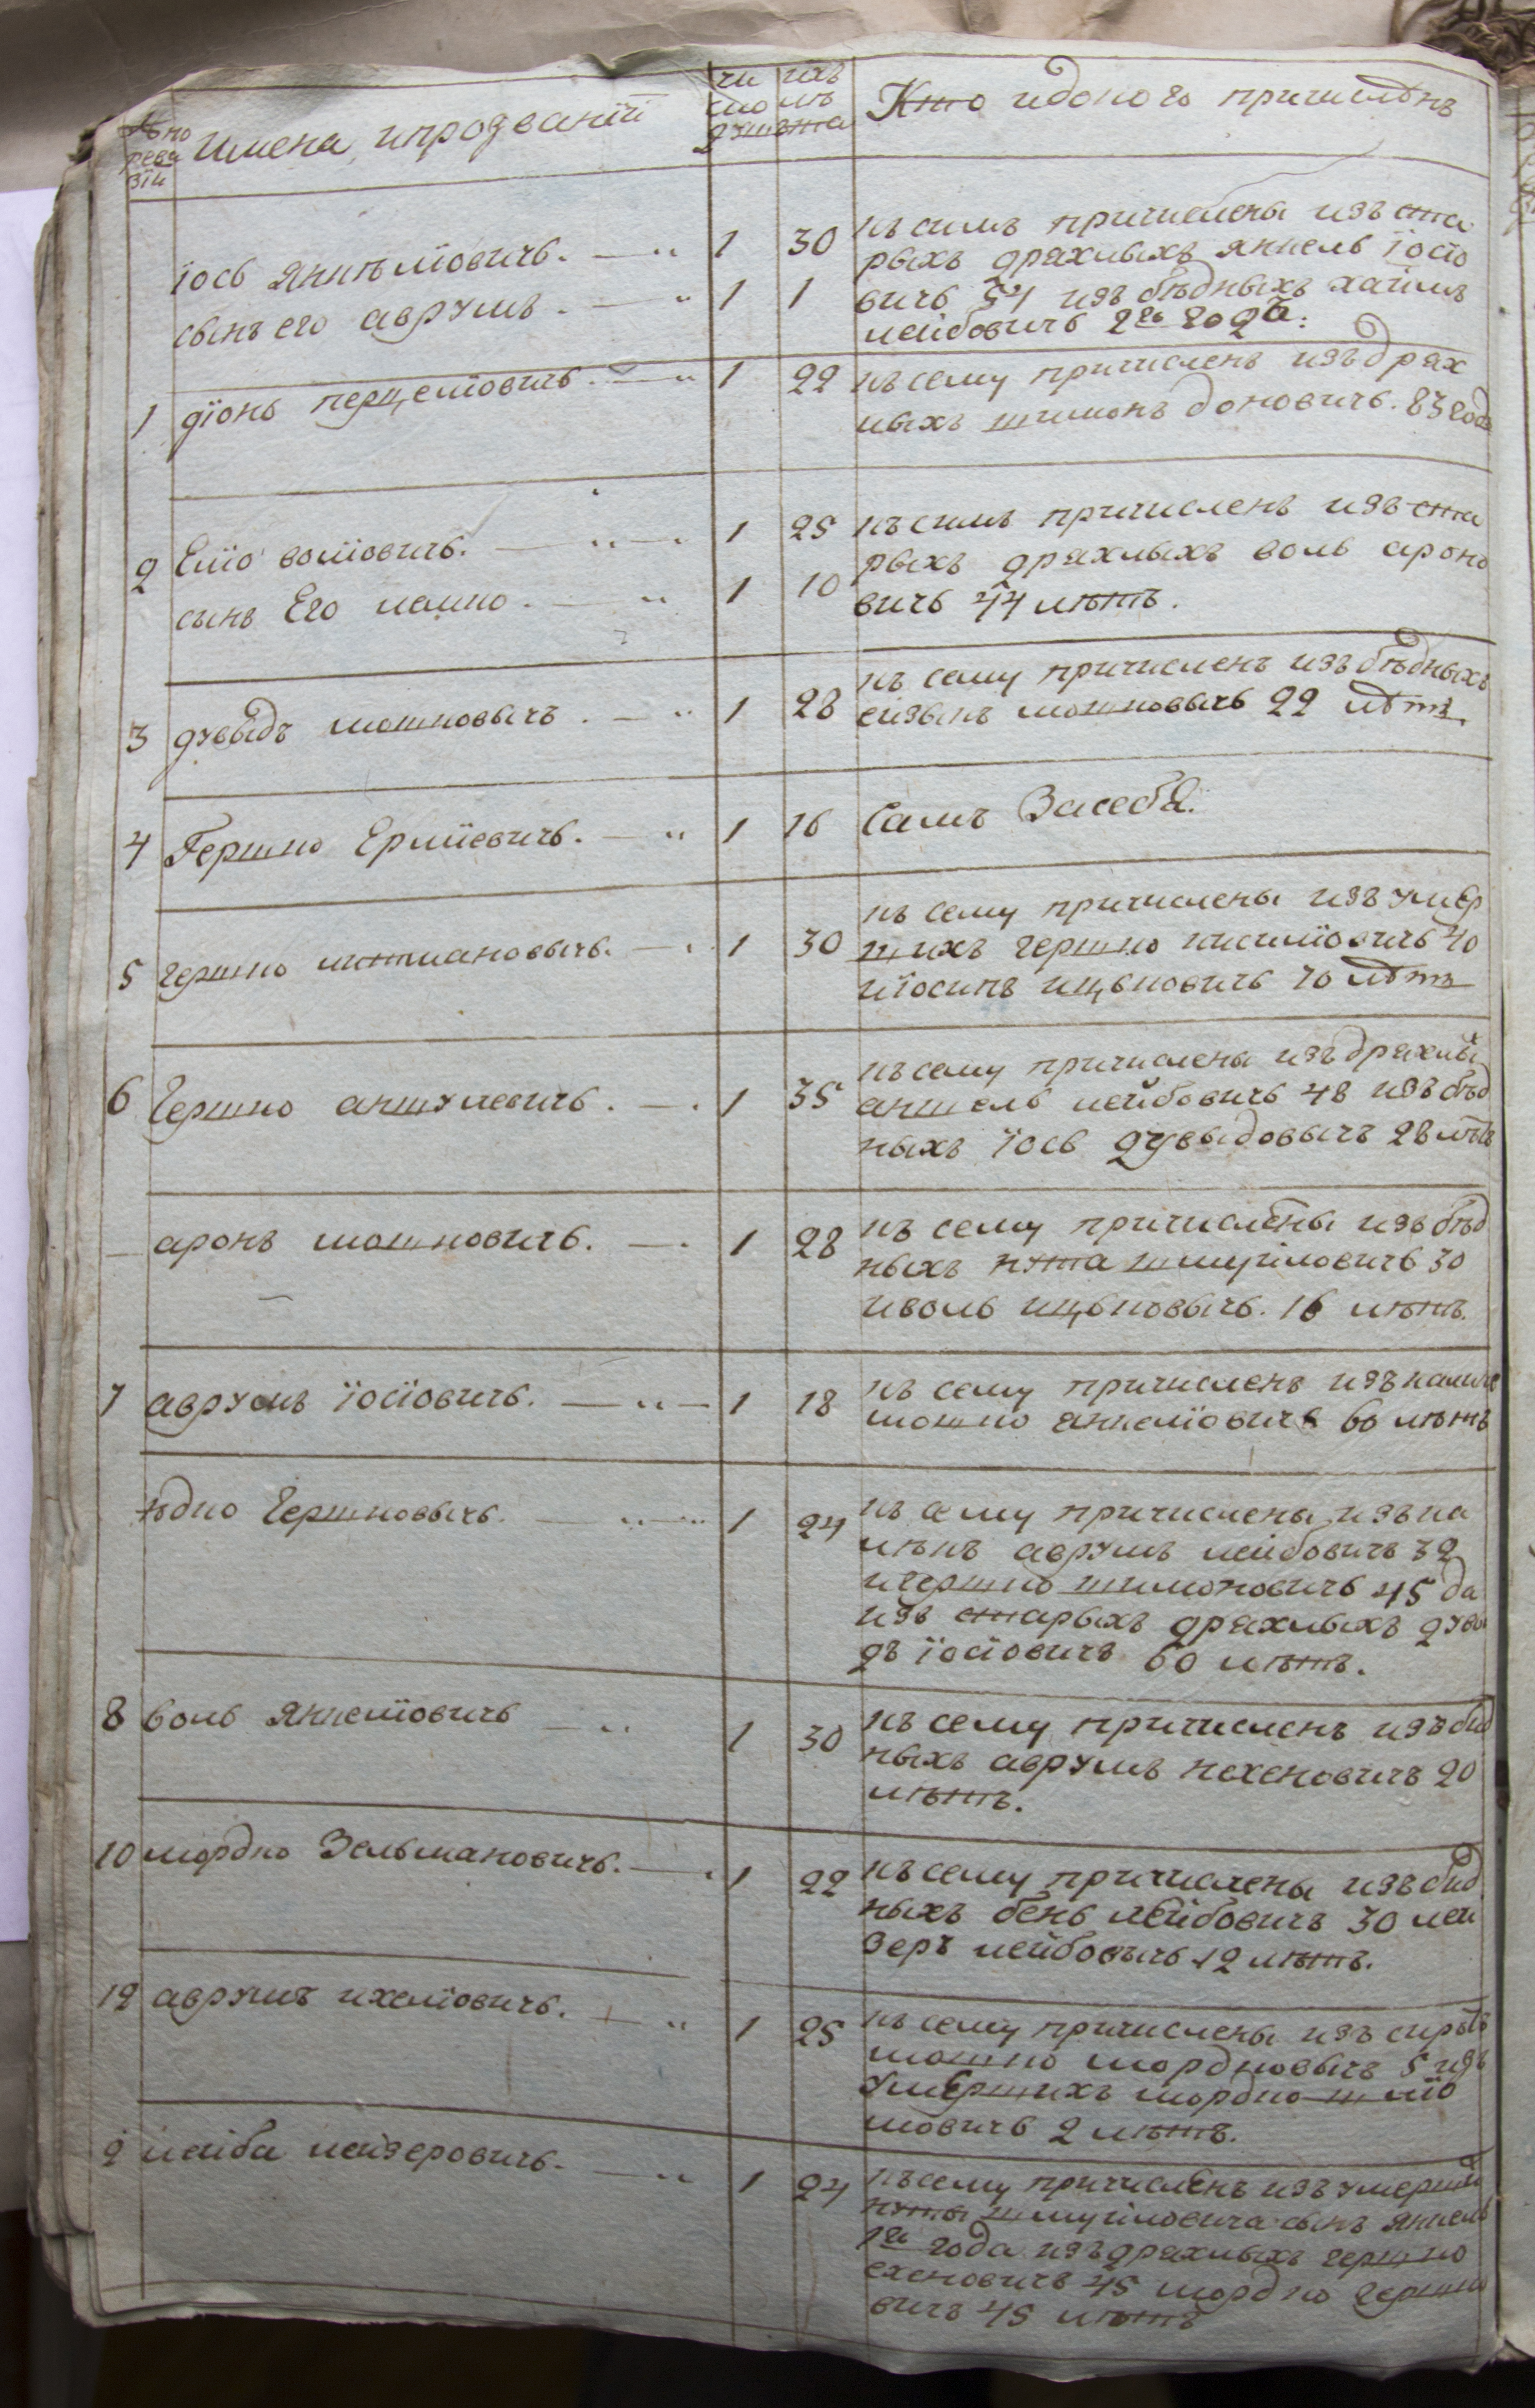 № по
реви
зіи
Имена, ипрозваніи
чи
сло
душъ
ихъ
лѣ
ъта
Кто идоного причисленъ
Іось Янкѣліовичь. 1 30
сынъ его аврумъ. 1 1
къ симъ причислены изъ ста
рыхъ дряхлыхъ янкель Іосіо
вичь 54 изъ бѣдныхъ хаимъ
лейбовичь 2го года:
1 діонь перцеліовичь. 1 22
къ сему причисленъ изъ дрях
лыхъ шимонъ доновичь. 83 года
2 Еліо воліовичь. 1 25
сынъ Его лейко. 1 10
къ симъ причисленъ изъ ста
рыхъ дряхлыхъ воль ароно
вичь 44 лѣтъ.
3 дувыдъ мошковычъ. 1 28
къ сему причисленъ изъ бѣдныхъ
мошковычь 22 лѣтъ
4 Гершко Ерліевичь. 1 16
Самъ Засебя.
5 гершко литмановычь. 1 30
къ сему причислены изъ умер
шихъ гершко кисиліовичь 40
иіосипъ ицьковичь 70 лѣтъ
6 Гершко аншулевичь. 1 35
къ сему причислены изъ дряхлы
аншель лейбовичь 48 изъ бѣд
ныхъ Іось дувыдовычъ 28 лѣтъ
аронъ мошковичь. 1 28
къ сему причислены изъ бѣд
ныхъ нута шмуіловичь 30
иволь ицьковычь. 16 лѣтъ.
7 аврумъ Іосіовичь. 1 18
къ сему причисленъ изъ калике
мошко анкеліовичь 60 лѣтъ
юдко Гершковычь. 1 24
къ сему причислены изъ ка
лѣкъ аврумъ лейбовичь 32
игершко шимоновичь 45 да
изъ старыхъ дряхлыхъ дувы
дъ Іосіовичъ 60 лѣтъ.
8 воль Янкеліовичь 1 30
къ сему причисленъ изъ бид
ныхъ аврумъ нохеновичъ 20
лѣтъ.
10 мордко Зельмановичь. 1 22
къ сему причислены изъ бид
ныхъ бень лейбовичъ 30 лей
зеръ лейбовычь 12 лѣтъ.
12 аврумъ ихеліовичь. 1 25
къ сему причислены изъ сиротъ
мошко мордковычъ 5 изъ
умершихъ мордко шліо
мовичь 2 лѣтъ.
2 лейба лейзеровичь. 1 24
къ сему причисленъ изъ умерши
нуты шмуіловича сынъ Янкель
1го года изъ дряхлыхъ гершко
ехеновичъ 45 мордко гершко
вичъ 45 лѣтъ